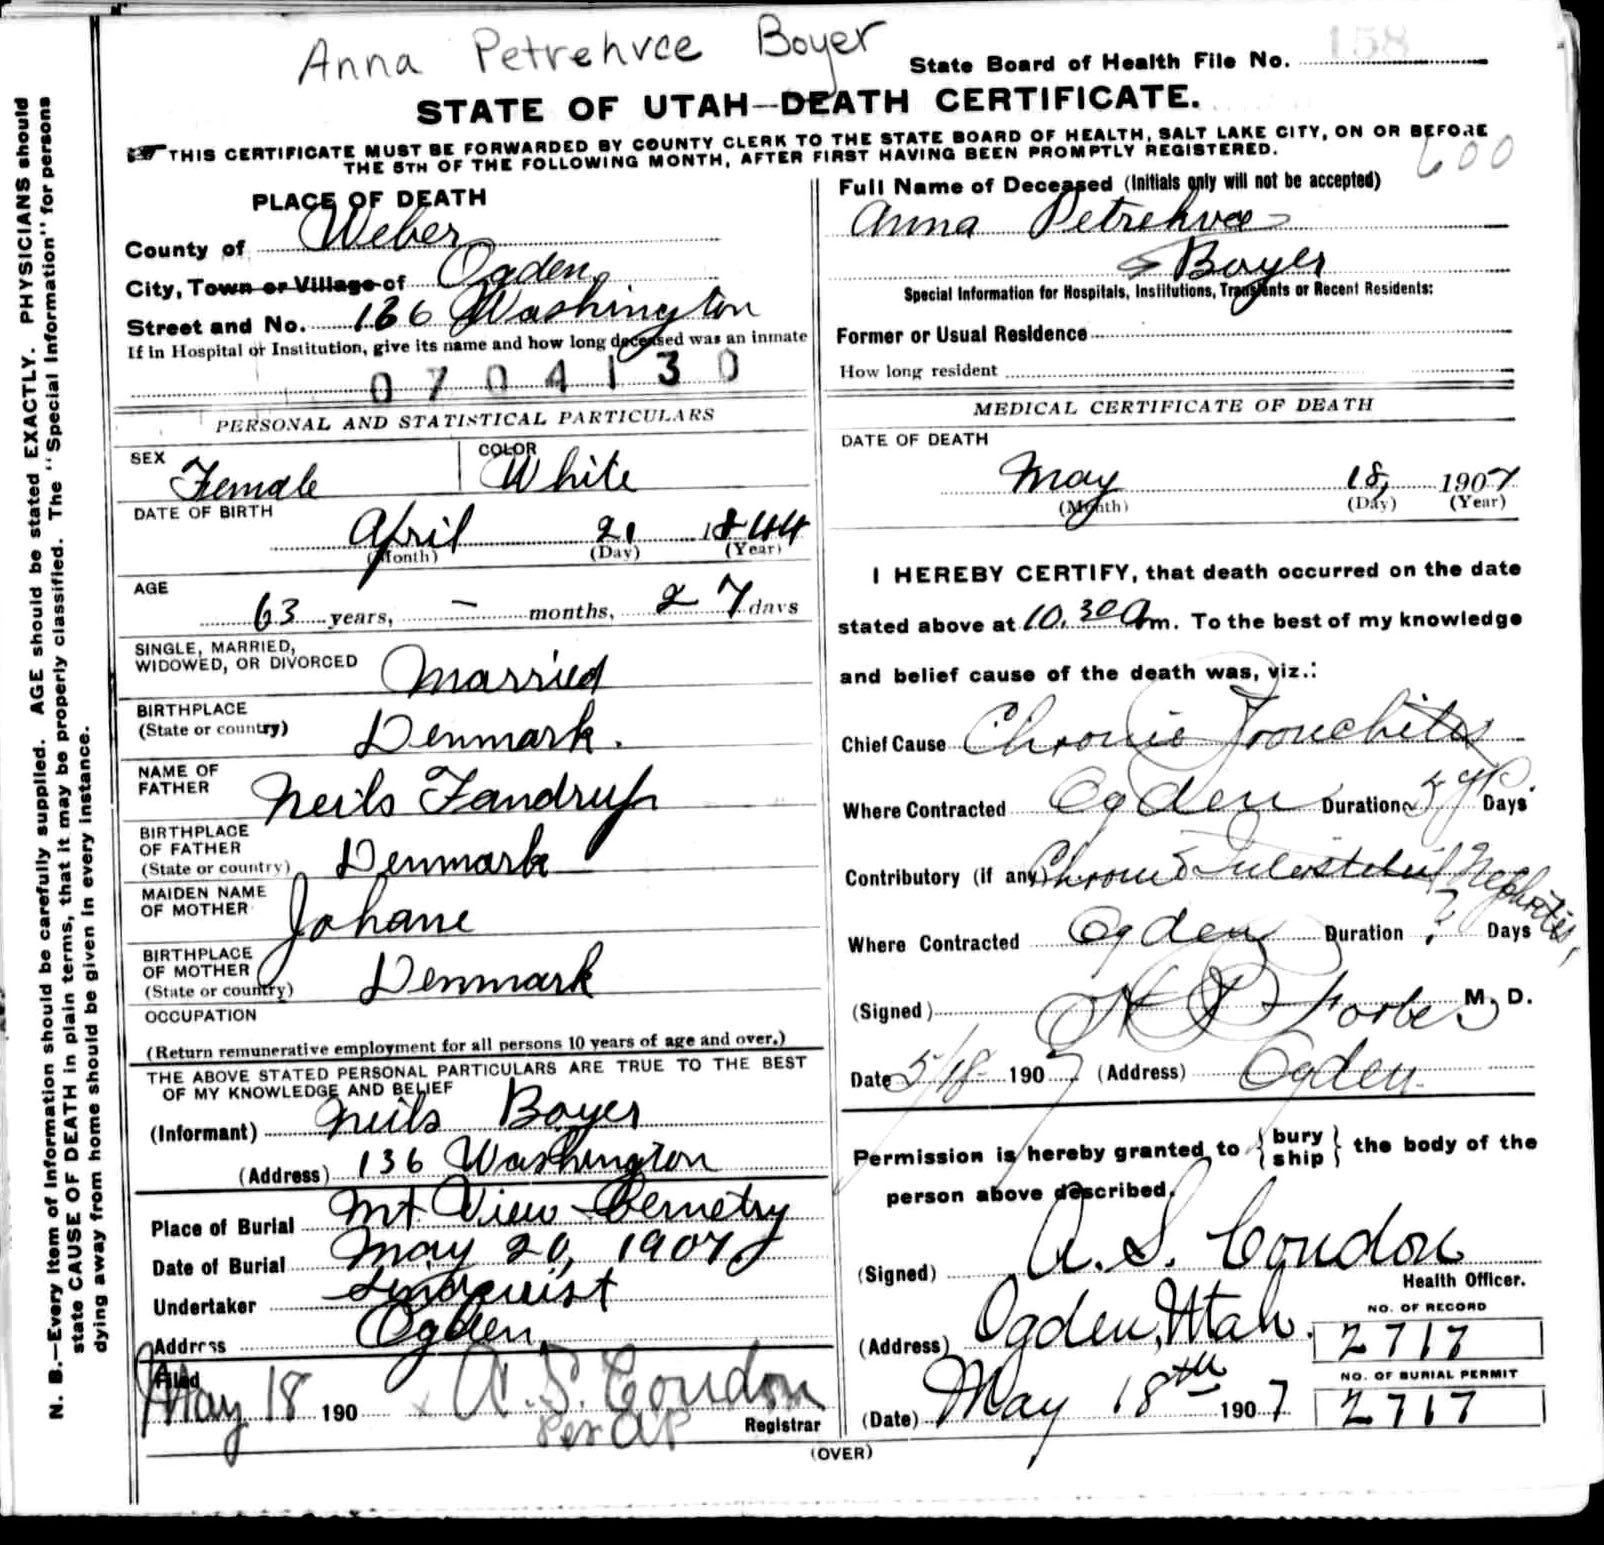 Anna Petrehvce Boyer
State Board of Health File No. 158
STATE OF UTAH—DEATH CERTIFICATE.
THIS CERTIFICATE MUST BE FORWARDED BY COUNTY CLERK TO THE STATE BOARD OF HEALTH, SALT LAKE CITY, ON OR BEFORE
THE 5TH OF THE FOLLOWING MONTH, AFTER FIRST HAVING BEEN PROMPTLY REGISTERED.
600
N. B.—Every item of information should be carefully supplied. AGE should be stated EXACTLY. PHYSICIANS should
state CAUSE OF DEATH in plain terms, that it may be properly classified. The "Special Information" for persons
dying away from home should be given in every instance.
PLACE OF DEATH
County of Weber
City, Town or Village of Ogden
Street and No. 136 Washington
If in Hospital or Institution, give its name and how long deceased was an inmate
0704130
PERSONAL AND STATISTICAL PARTICULARS
SEX Female
COLOR White
DATE OF BIRTH
April 21 1844
(Month) (Day) (Year)
AGE
63 years, – months, 27 days
SINGLE, MARRIED,
WIDOWED, OR DIVORCED Married
BIRTHPLACE
(State or country) Denmark.
NAME OF
FATHER Neils Fandrup
BIRTHPLACE
OF FATHER
(State or country) Denmark
MAIDEN NAME
OF MOTHER Johane
BIRTHPLACE
OF MOTHER
(State or country) Denmark
OCCUPATION
(Return remunerative employment for all persons 10 years of age and over.)
THE ABOVE STATED PERSONAL PARTICULARS ARE TRUE TO THE BEST
OF MY KNOWLEDGE AND BELIEF
(Informant) Neils Boyer
(Address) 136 Washington
Place of Burial Mt View Cemetry
Date of Burial May 20, 1907
Undertaker Lindquist
Address Ogden
Filed
May 18 190 A. S. Condon
Per AP Registrar
Full Name of Deceased (Initials only will not be accepted)
Anna Petrehvce
Boyer
Special Information for Hospitals, Institutions, Transients or Recent Residents:
Former or Usual Residence
How long resident
MEDICAL CERTIFICATE OF DEATH
DATE OF DEATH
May 18, 1907
(Month) (Day) (Year)
I HEREBY CERTIFY, that death occurred on the date
stated above at 10.30 Am. To the best of my knowledge
and belief cause of the death was, viz.:
Chief Cause Chronic Bronchitis
Where Contracted Ogden Duration 5 yr Days
Contributory (if any) Chronic Interstitial Nephritis,
Where Contracted Ogden Duration ? Days
(Signed) Forbes M. D.
Date 5/18 1907 (Address) Ogden
Permission is hereby granted to { bury ship } the body of the
person above described.
(Signed) A. S. Condon
Health Officer.
(Address) Ogden, Utah.
NO. OF RECORD
2717
NO. OF BURIAL PERMIT
2717
(Date) May 18th 1907
(OVER)